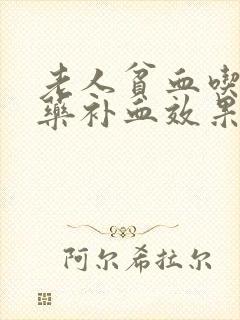 老人贫血喫
药补血效果
阿尔希拉尔